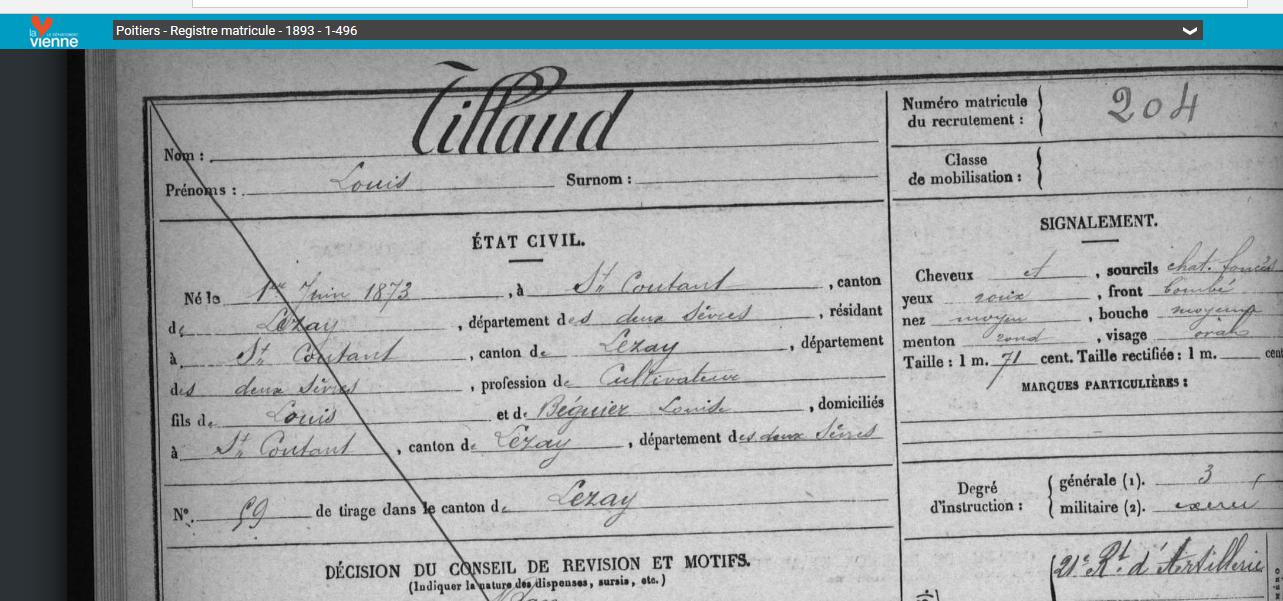 la vienne
LE DÉPARTEMENT
Poitiers - Registre matricule - 1893 - 1-496
Nom : Tillaud
Prénoms : Louis Surnom :
Numéro matricule du recrutement : 204
Classe de mobilisation :
ÉTAT CIVIL.
Né le 1er Juin 1873, à St Coutant, canton
de Lezay, département des deux Sèvres, résidant
à St Coutant, canton de Lezay, département
des deux Sèvres, profession de Cultivateur
fils de Louis et de Béguier Louise, domiciliés
à St Coutant, canton de Lezay, département des deux Sèvres
N° 59 de tirage dans le canton de Lezay
DÉCISION DU CONSEIL DE REVISION ET MOTIFS.
(Indiquer la nature des dispenses, sursis, etc.)
SIGNALEMENT.
Cheveux et, sourcils chat. foncés
yeux roux, front bombé
nez moyen, bouche moyenne
menton rond, visage ovale
Taille : 1 m. 71 cent. Taille rectifiée : 1 m. cent
MARQUES PARTICULIÈRES :
Degré d'instruction :
générale (1). 3
militaire (2). exercé
21e Rt d'Artillerie